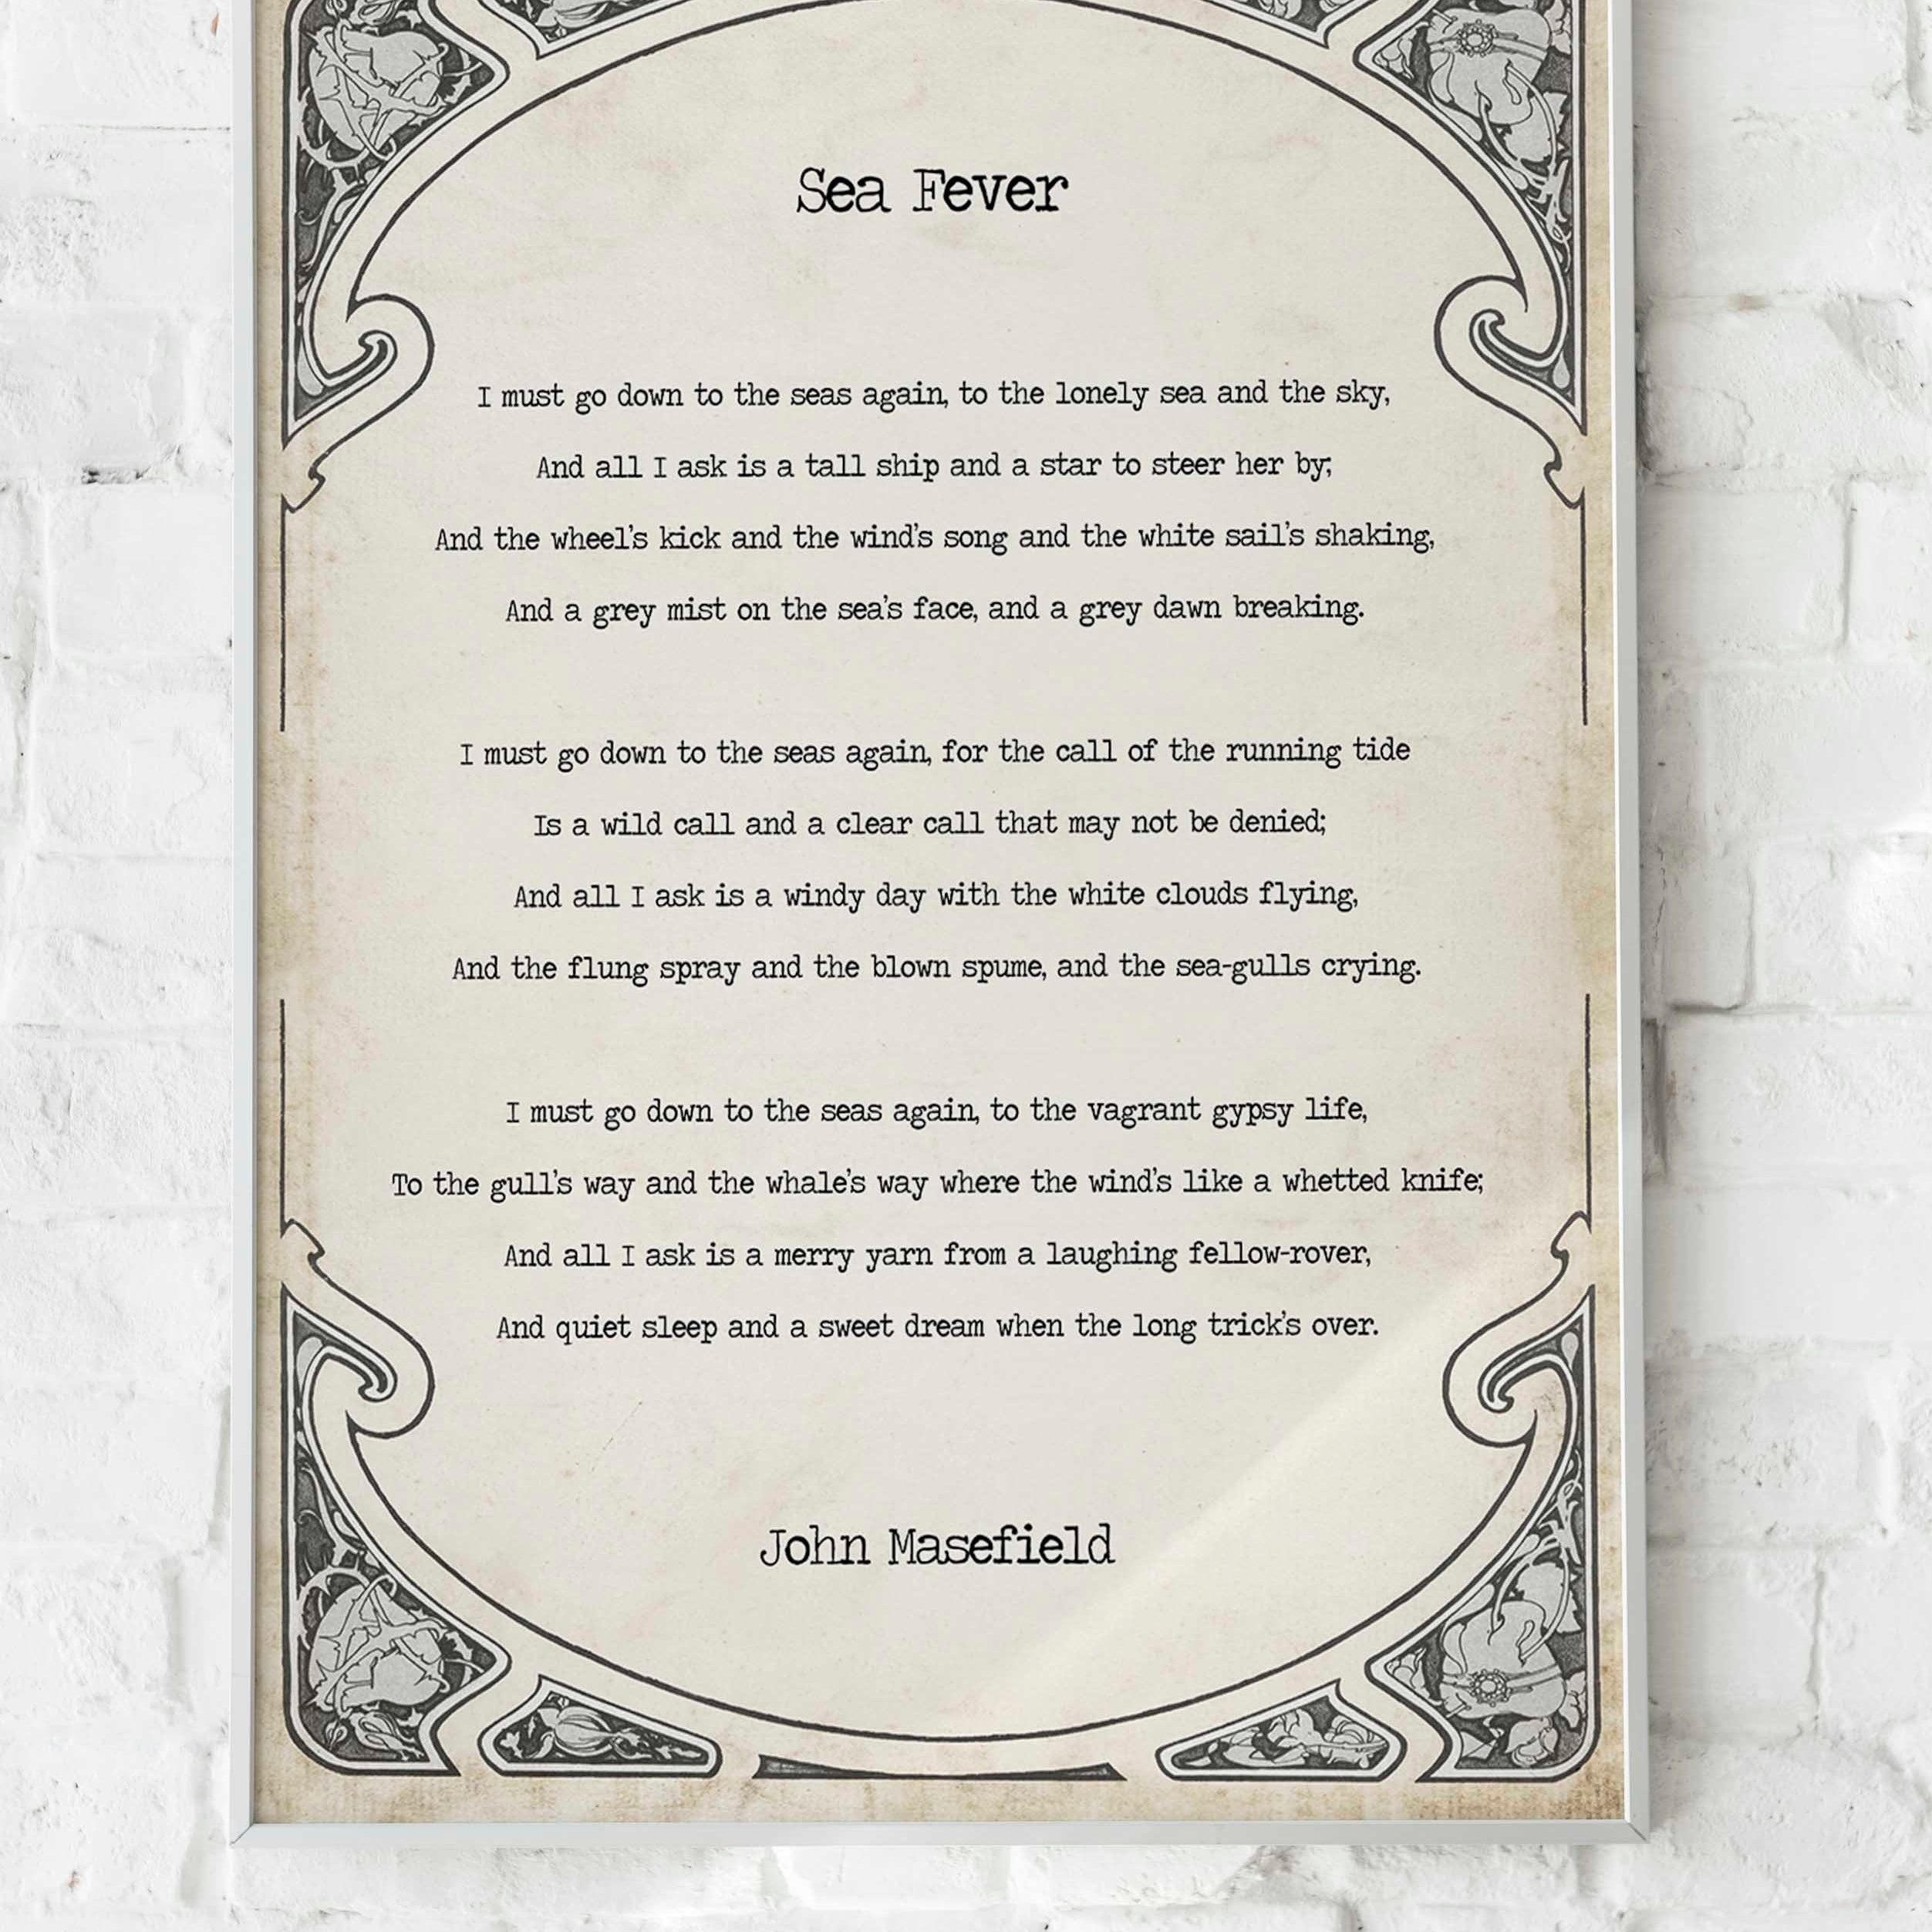 Sea Fever
I must go down to the seas again, to the lonely sea and the sky,
And all I ask is a tall ship and a star to steer her by;
And the wheel's kick and the wind's song and the white sail's shaking,
And a grey mist on the sea's face, and a grey dawn breaking.
I must go down to the seas again, for the call of the running tide
Is a wild call and a clear call that may not be denied;
And all I ask is a windy day with the white clouds flying,
And the flung spray and the blown spume, and the sea-gulls crying.
I must go down to the seas again, to the vagrant gypsy life,
To the gull's way and the whale's way where the wind's like a whetted knife;
And all I ask is a merry yarn from a laughing fellow-rover,
And quiet sleep and a sweet dream when the long trick's over.
John Masefield